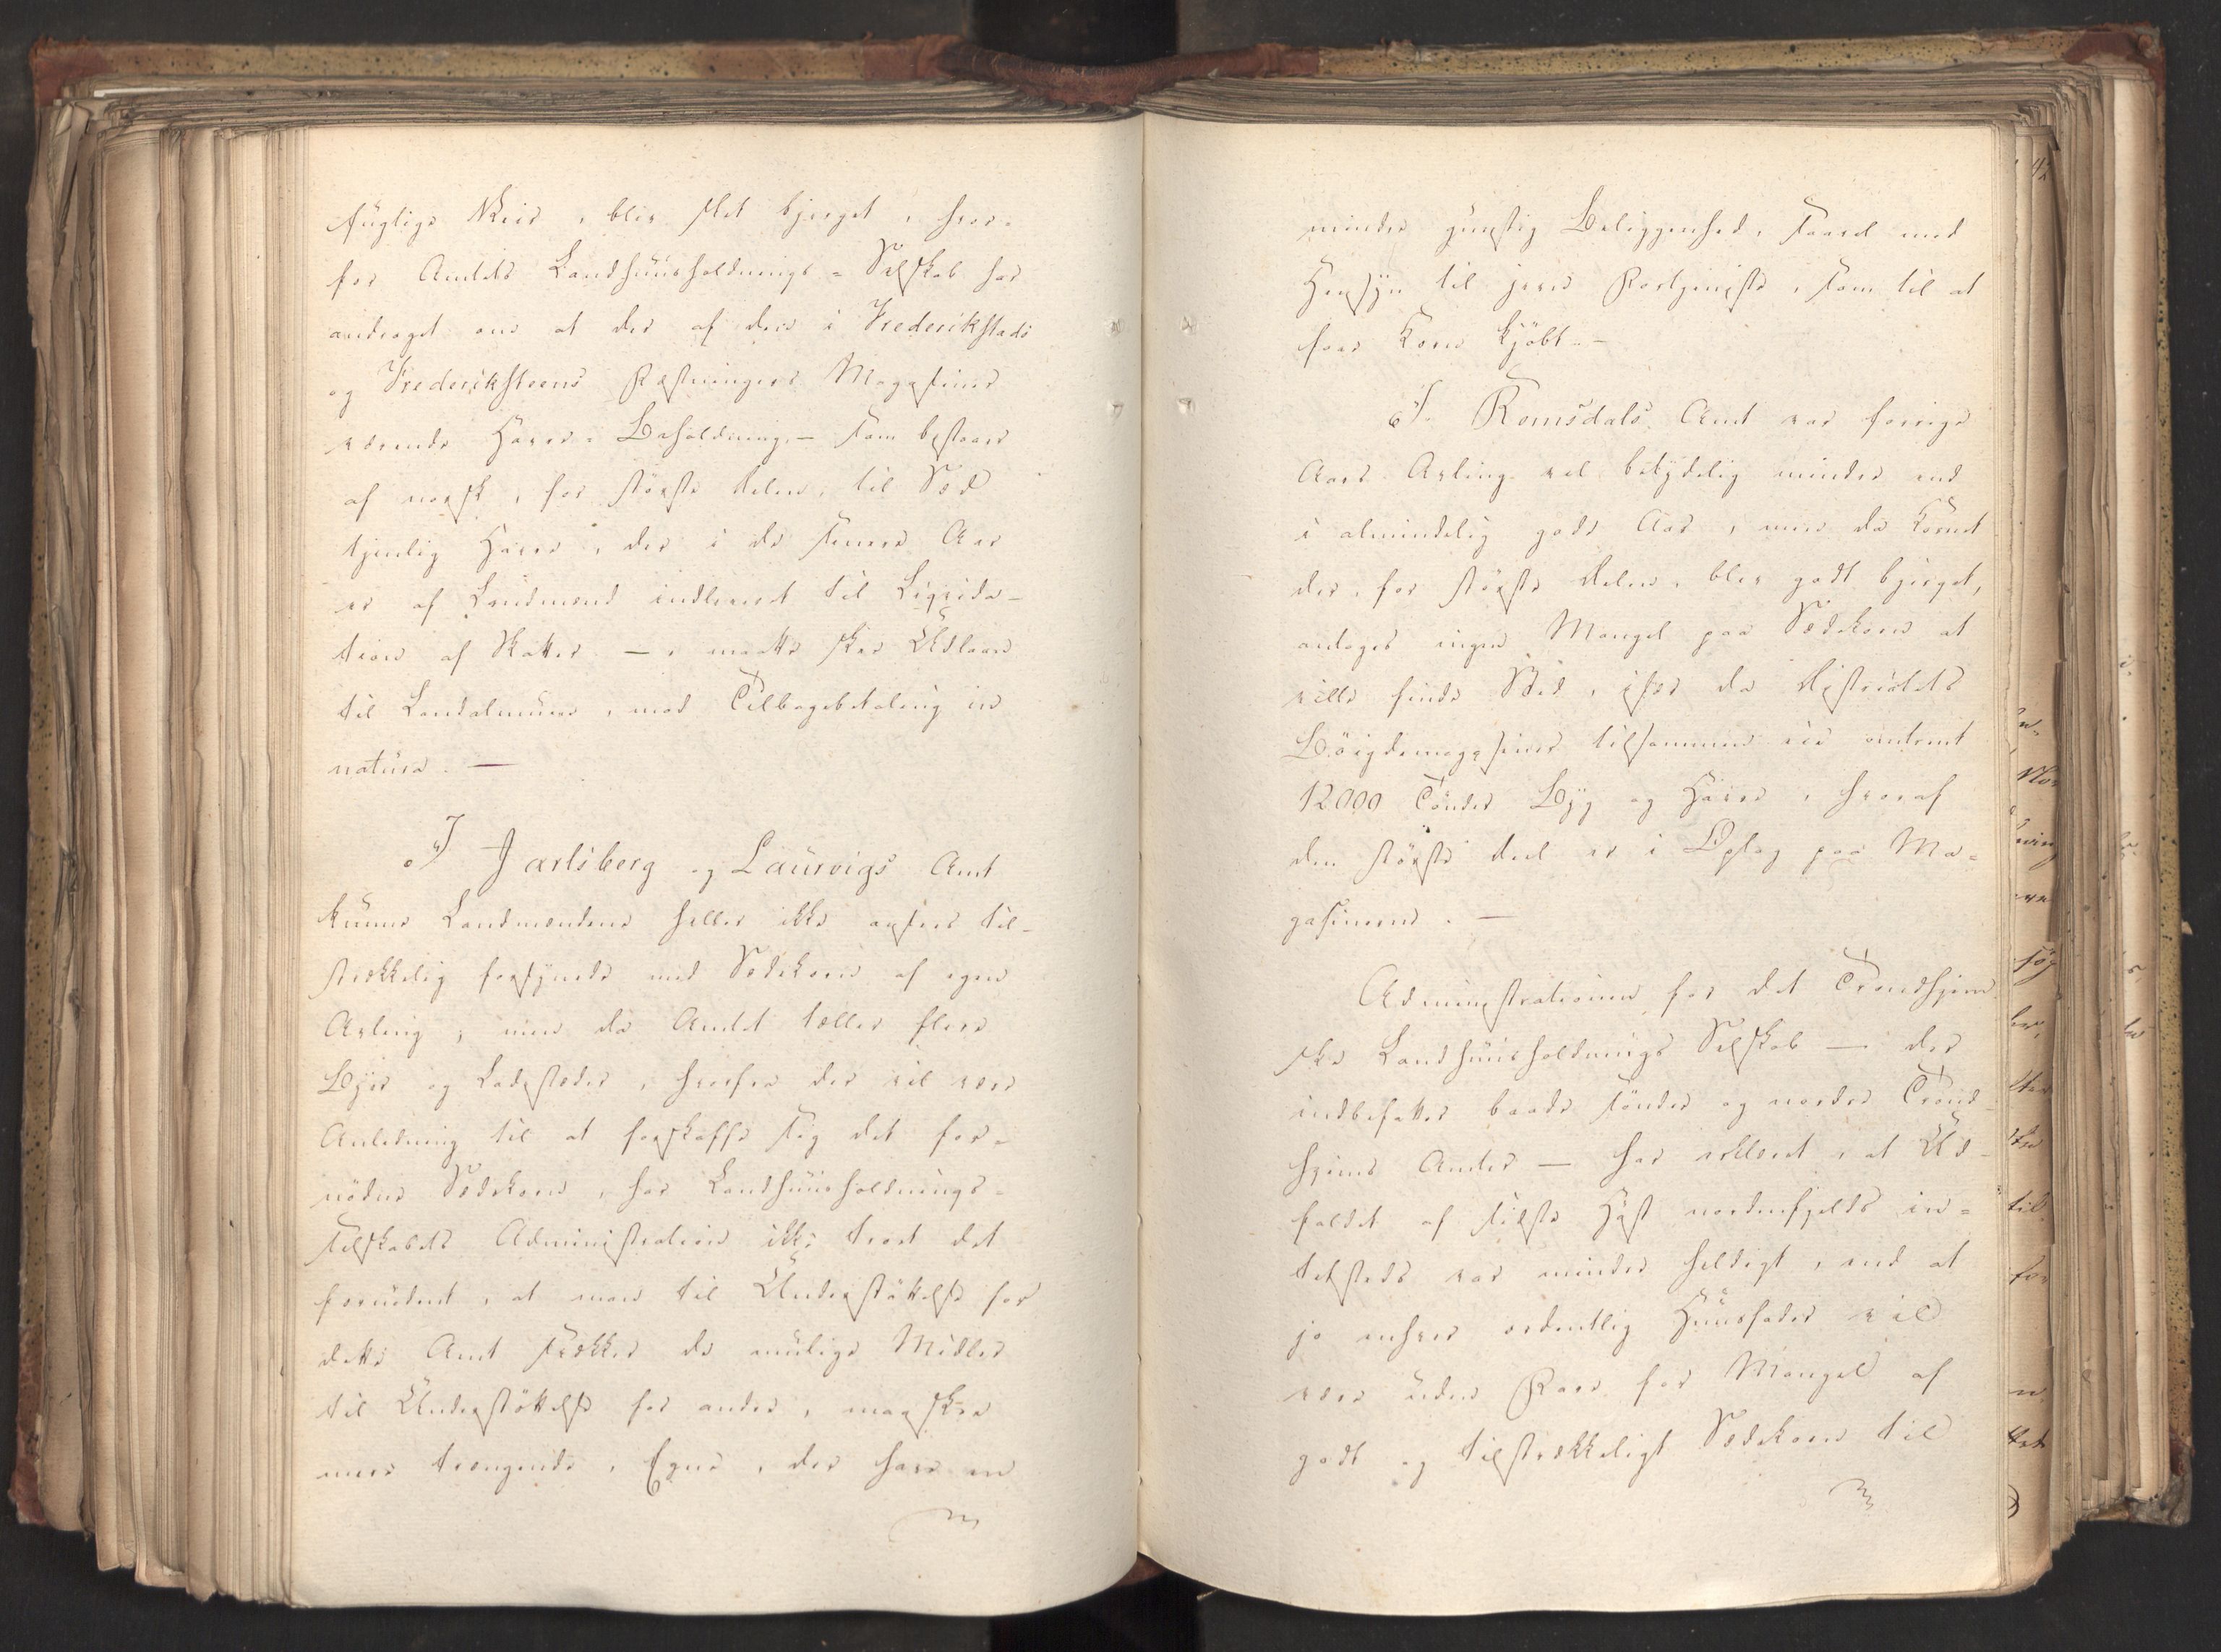 fugtige Veir, blev slet bjerget, hvor=
for Amtets Landhuusholdnings=Selskab har
andraget om at der af den i Frederikstads
og Frederiksteens Fæstningers Magasiner
værende Havre=Beholdning – som bestaaer
af norsk, for störste Delen, til Sæd
tjenlig Havre, der i de senere Aar
er af Landmænd indleveret til Liqvida=
tion af Skatter –, maatte skee Udlaan
til Landalmuen, mod Tilbagebetaling in
natura. –
I Jarlsberg og Laurvigs Amt
kunne Landmændene heller ikke ansees til=
strækkelig forsynede med Sædekorn af egen
Avling; men da Amtet tæller flere
Byer og Ladesteder, hvorfra der vil være
Anledning til at forskaffe sig det for=
nödne Sædekorn, har Landhuusholdnings=
selskabets Administration ikke troet det
fornödent, at man til Understöttelse for
dette Amt svækker de mulige Midler
til Understöttelse for andre, maaskee
mere trængende, Egne, der have en
mindre gunstig Beliggenhed, saavel med
Hensyn til jevn Fortjeneste, som til at
faae Korn kjöbt. –
I Romsdals Amt var forrige
Aars Avling vel betydelig mindre end
i almindelig gode Aar, men da Kornet
der, for störste Delen, blev godt bjerget,
antages ingen Mangel paa Sædekorn at
ville finde Sted, især da Districtets
Böigdemagasiner tilsammen eie omtrent
12000 Tönder Byg og Havre, hvoraf
den störste deel er i Oplag paa Ma=
gasinerne. –
Administrationen for det Trondhjem
ske Landhuusholdnings Selskab – der
indbefatter baade söndre og nordre Trond=
hjems Amter – har erklæret, at Ud=
faldet af sidste Höst nordenfjelds in=
tetsteds var mindre heldigt, end at
jo enhver ordentlig Huusfader vil
være uden Fare for Mangel af
godt og tilstrækkeligt Sædekorn til